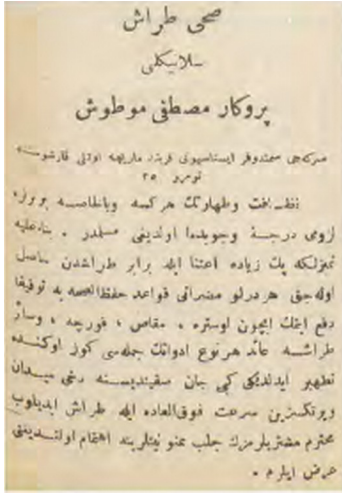 صحی طراش
سلانیکلی
پروکار مصطفی موطوش
سرکه‌جی شمندوفر ایستاسیونی قربنده ماریچه اوتلی قارشوسنده
نومرو ٣٥
نظافت وطهارتك هركسه وبالخاصه بربره
لزومی درجۀ وجوبده اولدیغی مسلمدر . بناءعلیه
تمیزلكه پك زیاده اعتنا ایله برابر طراشدن حاصل
اوله‌جق هردرلو مضراتی قواعد حفظ‌الصحه‌یه توفیقا
دفع ایتمك ایچون اوستره ، مقاص ، فورچه ، وسائر
طراشه عائد هر نوع ادواتك جمله‌سی كوز اوكنده
تطهیر ایدلدیكی كبی جان صقیندیسنه دخی میدان
ویرلمكسزین سرعت فوق‌العاده ایله طراش ایدیلوب
محترم مشتریلرمزك جلب ممنونیتلرینه اهتمام اولندیغنی
عرض ایلرم .